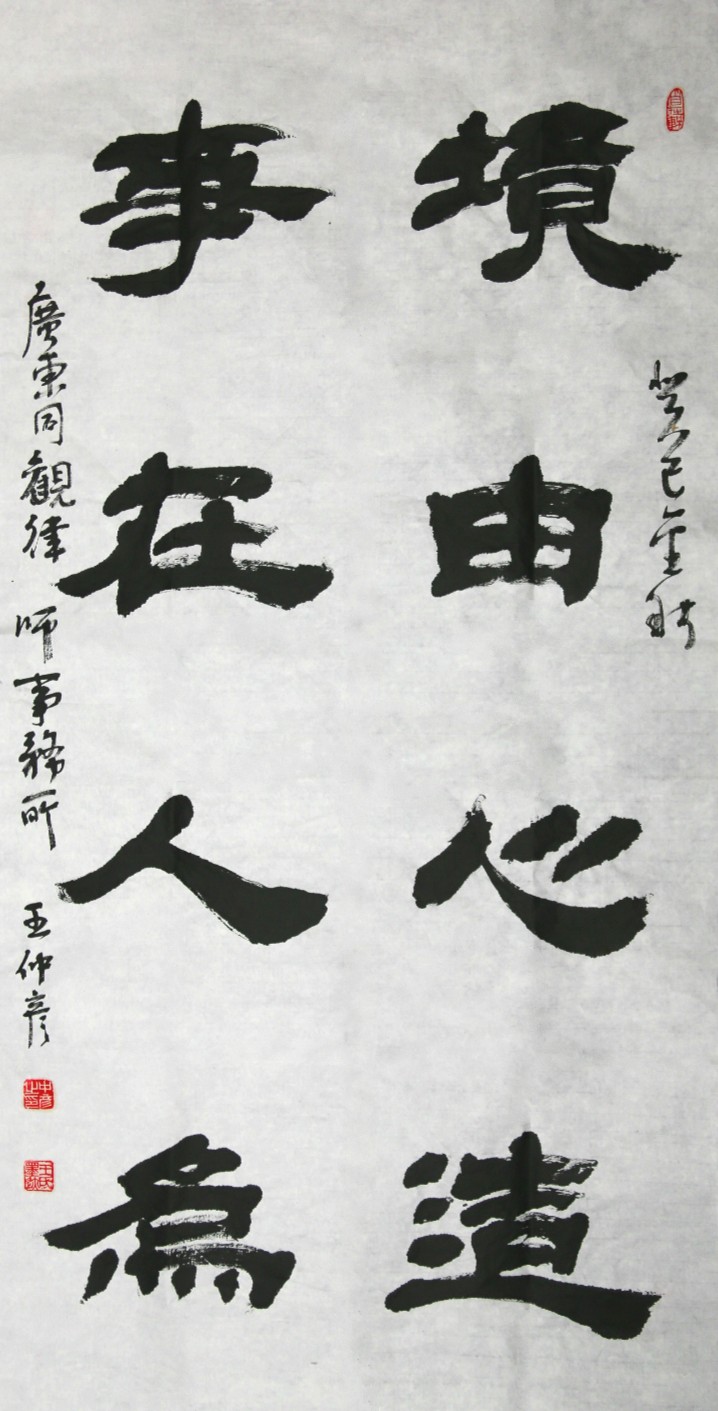 境由心造
事在人為
癸巳金秋
廣東同觀律師事務所 王仲彦